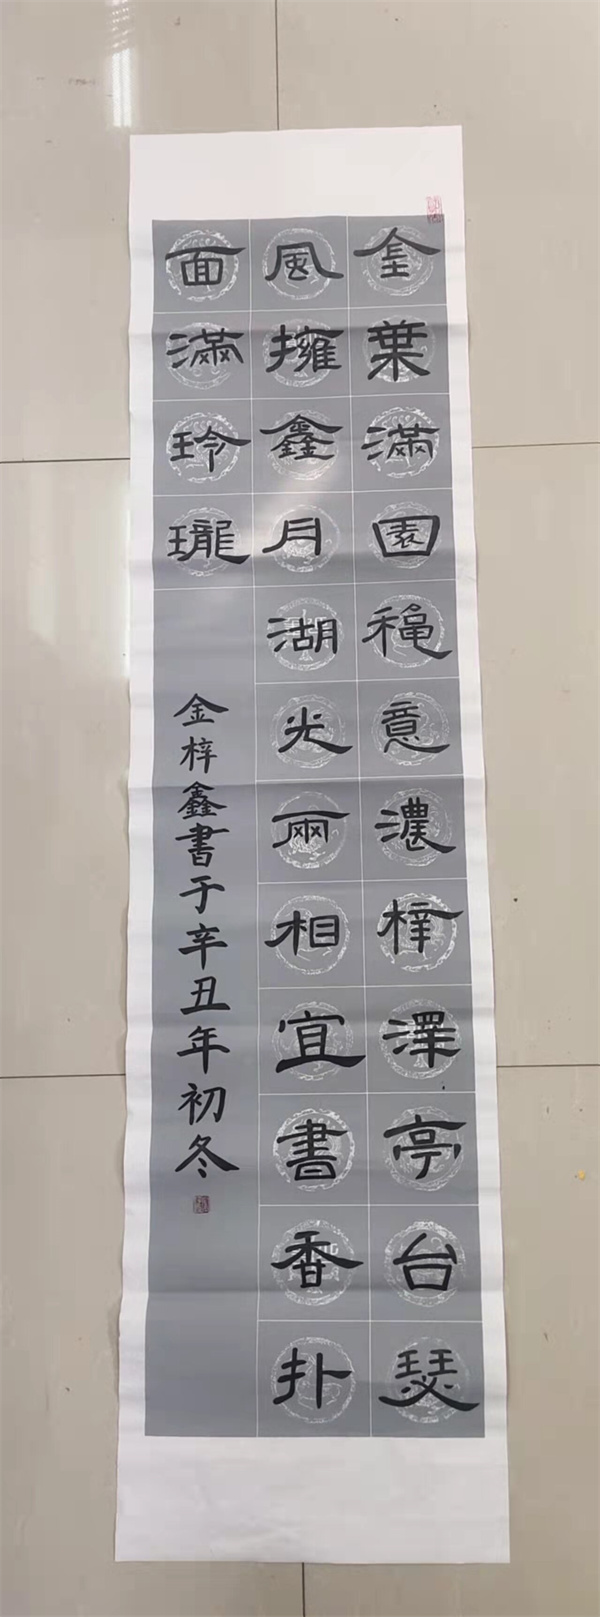 金葉滿園穐意濃梓澤亭台瑟
風擁鑫月湖光兩相宜書香扑
面滿玲瓏
金梓鑫書于辛丑年初冬